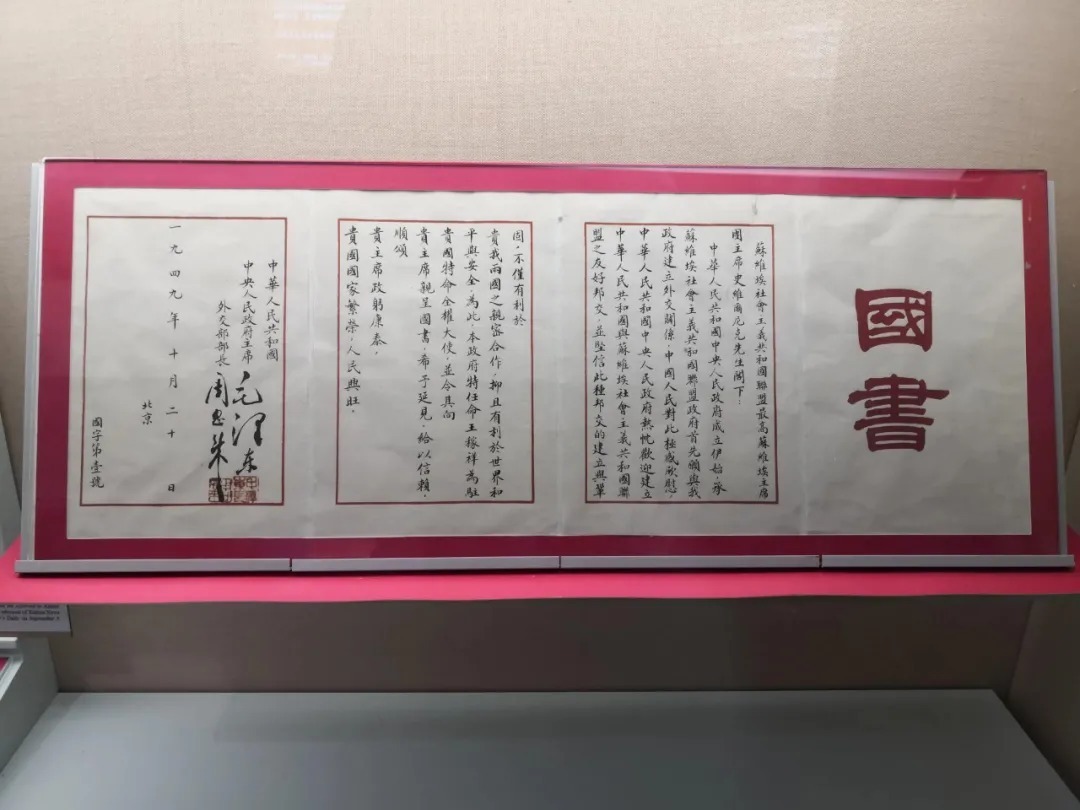 國書
蘇維埃社會主義共和國聯盟最高蘇維埃主席
團主席史維爾尼克先生閣下：
中華人民共和國中央人民政府成立伊始，承
蘇維埃社會主義共和國聯盟政府首先願與我
政府建立外交關係，中國人民對此極感欣慰。
中華人民共和國中央人民政府熱忱歡迎建立
中華人民共和國與蘇維埃社會主義共和國聯
盟之友好邦交，並堅信此種邦交的建立與鞏
固，不僅有利於
貴我兩國之親密合作，抑且有利於世界和
平與安全。為此，本政府特任命王稼祥為駐
貴國特命全權大使，並令其向
貴主席親呈國書，希予延見，給以信賴。
順頌
貴主席政躬康泰，
貴國國家繁榮，人民興旺。
中華人民共和國
中央人民政府主席 毛澤東
外交部部長 周恩來
一九四九年十月二十日
北京
國字第壹號